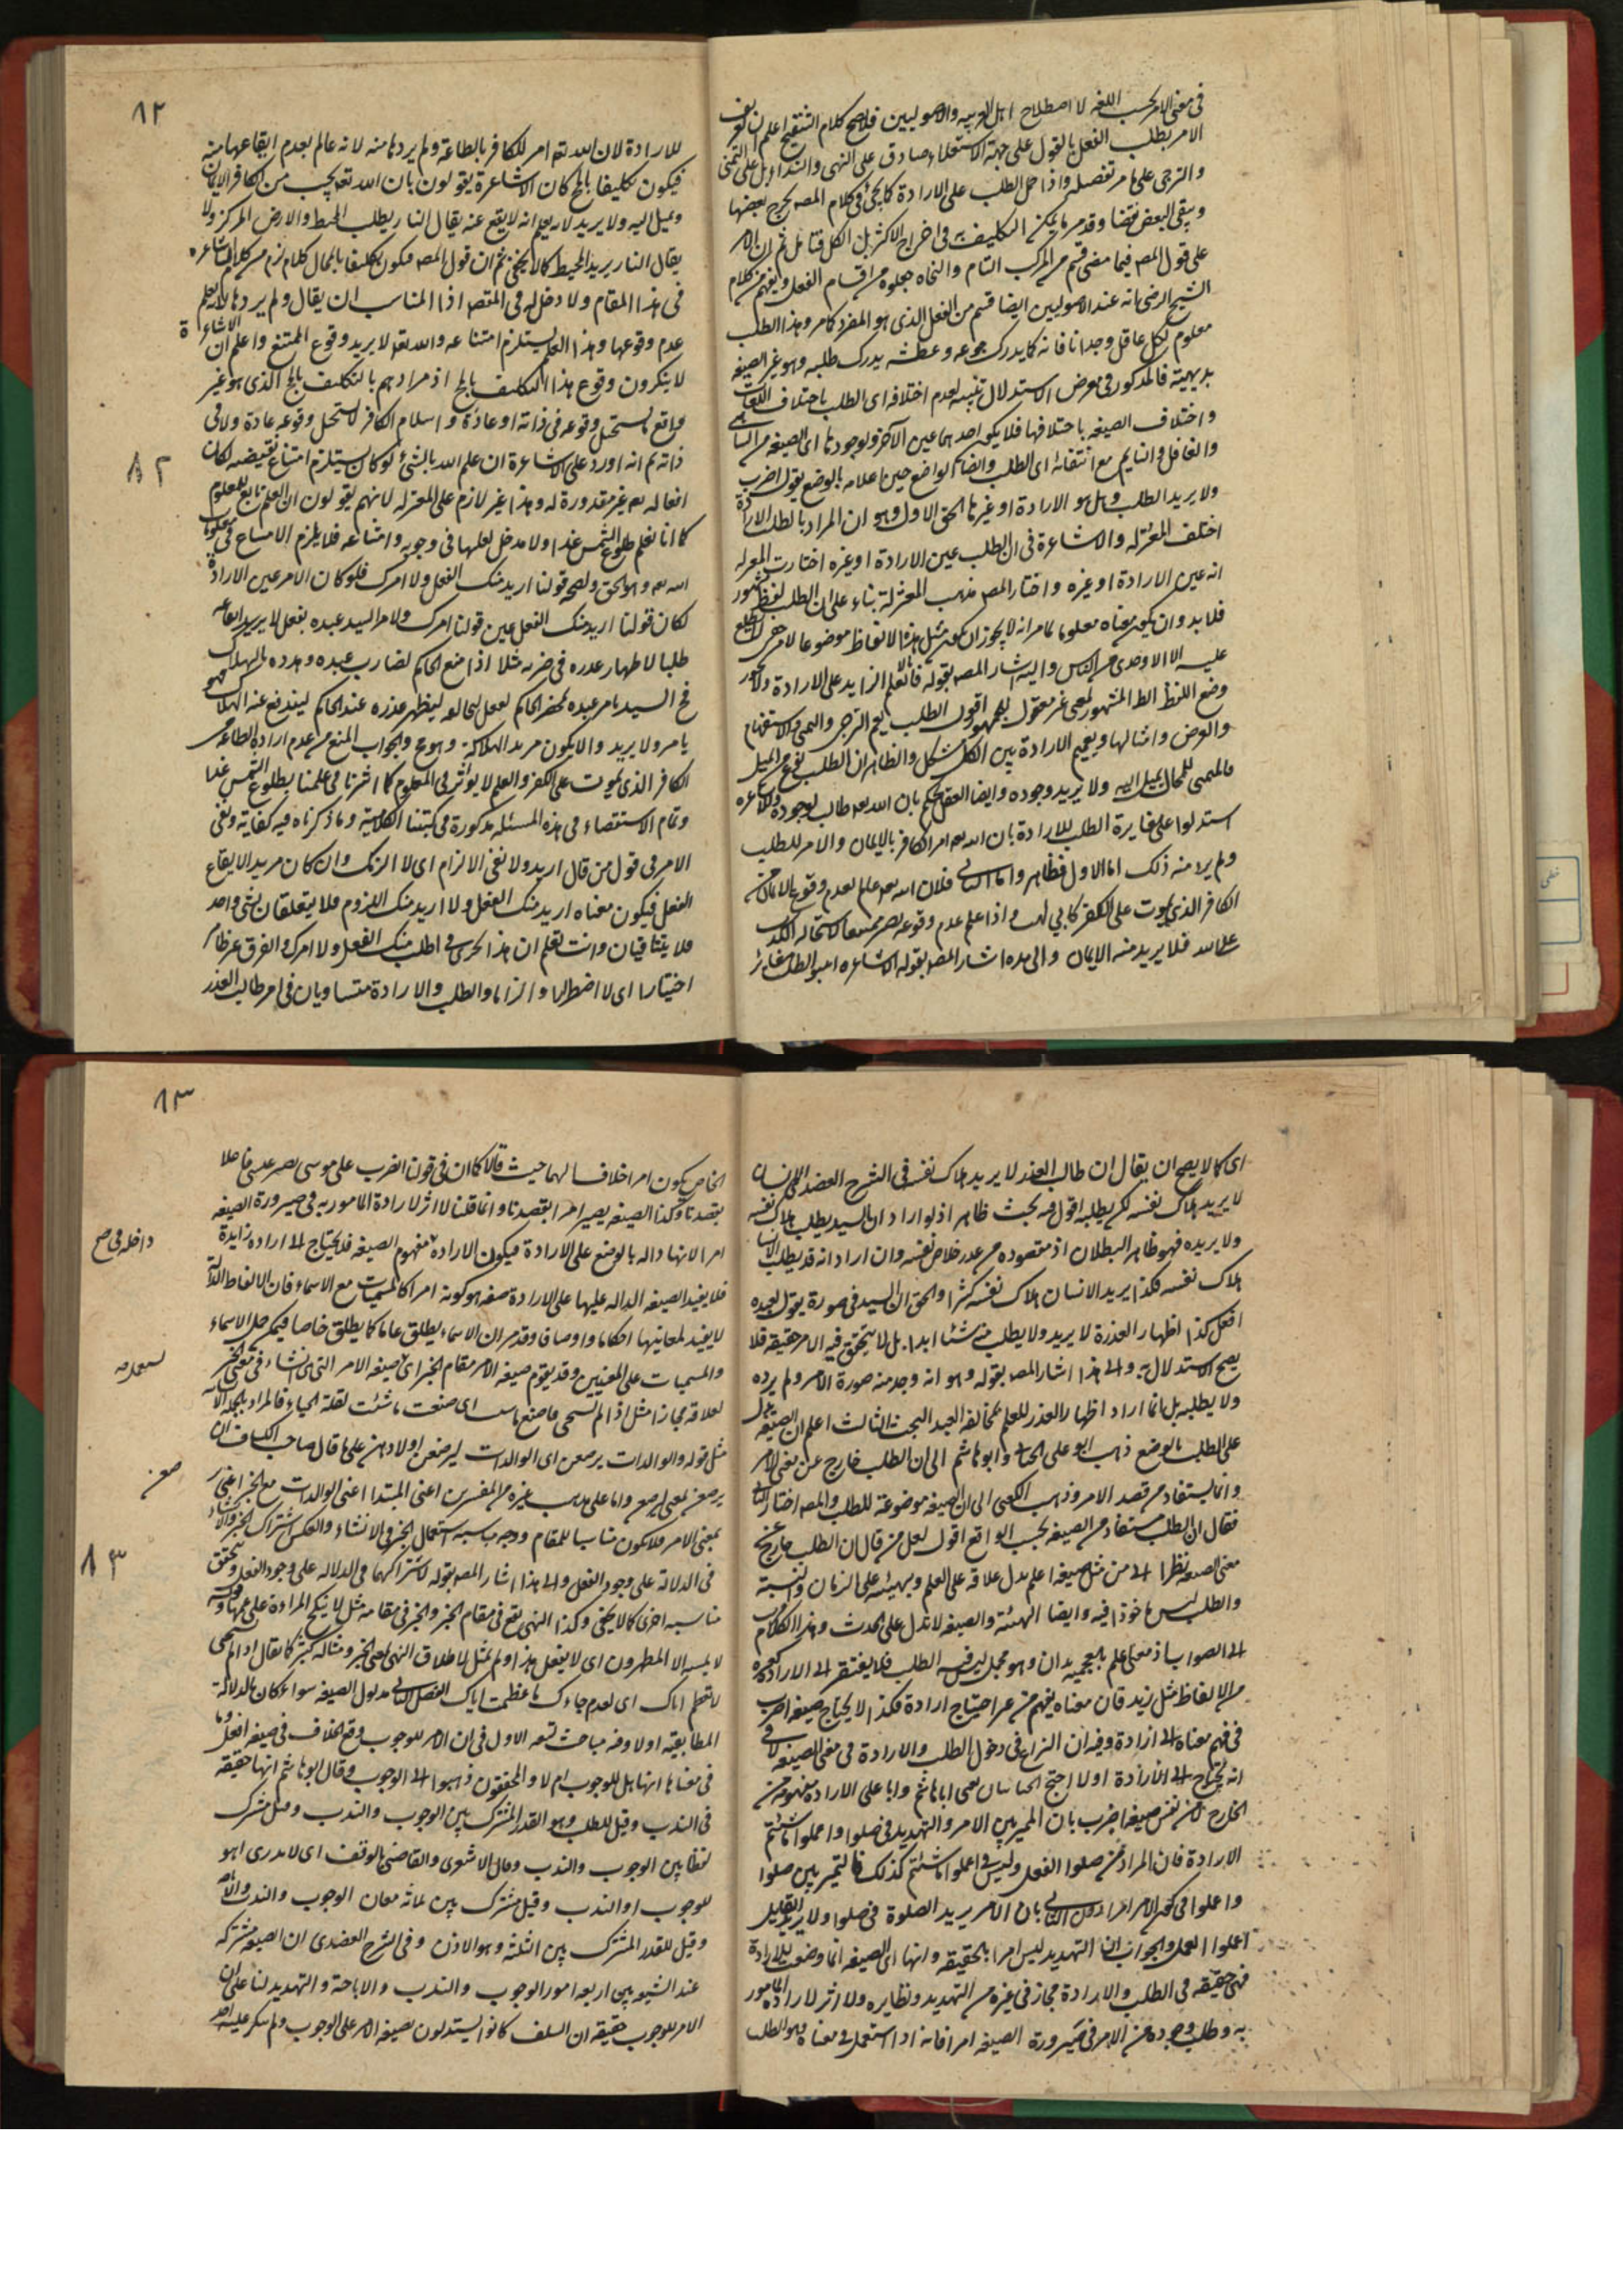 فى معنى الامر بحسب اللغه لا اصطلاح اهل العربيه والاصوليين فلا يصح كلام التنقيح اعلم ان تعريف
الامر بطلب الفعل بالقول على جهة الاستعلاء صادق على النهى والنداء بل على التمنى
والترجى على ما مر تفصيله واذا حمل الطلب على الارادة كما يجئ فى كلام المصه يخرج بعضها
ويبقى البعض نقضا وقد مر ما يمكن فى اخراج الاكثر بل الكل فتامل ثم ان الامر
على قول المصه فيما مضى قسم من المركب التام والنحاه جعلوه من اقسام الفعل ويفهم من كلام
الشيخ الرضى انه عند الاصوليين ايضا قسم من الفعل الذى هو المفرد كما مر وهذا الطلب
معلوم لكل عاقل وجدانا فانه كما يدرك جوعه وعطشه يدرك طلبه وهو غير الصيغه
بديهية فالمذكور فى معرض الاستدلال تنبيه لعدم اختلافه اى الطلب باختلاف اللغات
واختلاف الصيغه باختلافها فلا يكون احدهما عين الاخر ولوجودها اى الصيغه من الساهى
والغافل والنايم مع انتفائه اى الطلب وايضا الواضع حين اعلامه بالوضع يقول اضرب
ولا يريد الطلب وهل هو الارادة او غيرها الحق الاول وهو ان المراد بالطلب الارادة
اختلف المعتزله والاشاعرة فى ان الطلب عين الارادة او غيره اختارت المعتزله
انه عين الارادة او غيره واختار المصه مذهب المعتزلة بناء على ان الطلب لفظ مشهور
فلا بد وان يكون معناه معلوما لما مر انه لا يجوز ان يكون مثل هذه الالفاظ موضوعا لامر خفى لا يطلع
عليه الا الاوحدى من الناس واليه اشار المصه بقوله فانا لا نعلم الزايد على الارادة ولا يجوز
وضع اللفظ الظاهر المشهور لمعنى غير معقول للجمهور اقول الطلب يعم الترجى والتمنى والاستفهام
والعرض وامثالها وتعميم الارادة بين الكل مشكل والظاهر ان الطلب نوع من الميل
فالمتمنى للمحال يميل اليه ولا يريد وجوده وايضا العقل يحكم بان الله تعه طالب لوجوده والاشاعره
استدلوا على مغايرة الطلب للارادة بان الله تعه امر الكافر بالايمان والامر للطلب
ولم يرد منه ذلك اما الاول فظاهر واما الثانى فلان الله تعه عالم بعدم وقوع الايمان من
الكافر الذى يموت على الكفر كابى لهب واذا علم عدم وقوعه يصير ممتنعا لاستحاله الكذب
على الله فلا يريد منه الايمان والى هذه اشار المصه بقوله الاشاعره اثبتوا الطلب مغايرا
٨٢
للارادة لان الله تعه امر الكافر بالطاعة ولم يردها منه لانه عالم بعدم ايقاعها منه
فيكون تكليفا بالمح كان الاشاعرة يقولون بان الله تعه يحب من الكافر الايمان
ويميل اليه ولا يريد لانه يعلم انه لا يقع عنه يقال النار يطلب المحيط والارض المركز ولا
يقال النار يريد المحيط كما لا يخفى ثم ان قول المصه فيكون تكليفا بالمحال كلام لزم من كلام الاشاعره
فى هذا المقام ولا دخل له فى المقصد اذا المناسب ان يقال ولم يردها لانه يعلم
عدم وقوعها وهذا العلم يستلزم امتناعه والله تعه لا يريد وقوع الممتنع واعلم ان الاشاعرة
لا ينكرون وقوع هذا التكليف بالمح اذ مرادهم بالتكليف بالمح الذى هو غير
واقع يستحيل وقوعه فى ذاته او عادة واسلام الكافر لا يستحيل وقوعه عادة ولا فى
ذاته ثم انه اورد على الاشاعرة ان علم الله بالشئ لو كان يستلزم امتناع نقيضه لكان
٨٢
افعاله تعه غير مقدورة له وهذا غير لازم على المعتزله لانهم يقولون ان العلم تابع للمعلوم
كما انا نعلم طلوع الشمس غدا ولا مدخل لعلمنا فى وجوبه وامتناعه فلا يلزم الامتناع فى معلوم
الله تعه وهو الحق ولصحه قولنا اريد منك الفعل ولا امرك فلو كان الامر عين الارادة
لكان قولنا اريد منك الفعل عين قولنا امرك ولامر السيد عبده بفعل لا يريد ايقاعه
طلبا لاظهار عذره فى ضربه مثلا اذا منع الحاكم لضارب عبده وهدده بالهلاك
فح السيد يامر عبده بحضور الحاكم بفعل ليخالفه ليظهر عذره عند الحاكم ليندفع عنه الهلاك فهو
يامر ولا يريد والا يكون مريد الهلاكه وهو مح والجواب المنع من عدم ارادة الطاعه من
الكافر الذى يموت على الكفر والعلم لا يؤثر فى المعلوم كما اشرنا فى علمنا بطلوع الشمس غدا
وتمام الاستقصاء فى هذه المسئله مذكورة فى كتبنا الكلامية وما ذكرناه فيه كفاية ونفى
الامر فى قول من قال اريد ولا نفى الالزام اى لا الزمك وان كان مريد الايقاع
الفعل فيكون معناه اريد منك الفعل ولا اريد منك اللزوم فلا يتعلقان بشئ واحد
فلا يتنافيان وانت تعلم ان هذا الجرى فى اطلب منك الفعل ولا امرك والفرق غير ظاهر
اختيارا اى لا اضطرارا والزاما والطلب والارادة متساويان فى امر طالب العذر
اى كما لا يصح ان يقال ان طالب العذر لا يريد هلاك نفسه فى الشرح العضدى الانسان
لا يريد هلاك نفسه لكن يطلبه اقول فيه بحث ظاهر اذ لو اراد ان السيد يطلب هلاك نفسه
ولا يريده فهو ظاهر البطلان اذ مقصوده من عذر خلاص نفسه وان اراد انه قد يطلب الانسان
هلاك نفسه فكذا يريد الانسان هلاك نفسه كثيرا والحق ان السيد فى صورة يقول لعبده
افعل كذا اظهار العذرة لا يريد ولا يطلب منه شئا ابدا بل لا يتحقق فيه الامر حقيقه فلا
يصح الاستدلال به والى هذا اشار المصه بقوله وهو انه وجد منه صورة الامر ولم يرده
ولا يطلبه بل انما اراد اظهار العذر للعلم بمخالفه العبد البحث الثالث اعلم ان الصيغه تدل
على الطلب بالوضع ذهب ابو على الجبائى وابو هاشم الى ان الطلب خارج عن معنى الامر
وانما يستفاد من قصد الامر وذهب الكعبى الى ان الصيغه موضوعة للطلب والمصه اختار الثانى
فقال ان الطلب مستفاد من الصيغه بحسب الواقع اقول لعل من قال ان الطلب خارج عن
معنى الصيغه نظرا الى من مثل صيغه اعلم يدل علاقه على العلم وبهيئته على الزمان والنسبة
والطلب ليس ماخوذا فيه وايضا الهيئة والصيغه لا تدل على الحدث وهذا الكلام اقرب
الى الصواب اذ معنى اعلم بالعجميه بدان وهو مجمل ليس فيه الطلب فلا يفتقر الى الارادة كغيره
من الالفاظ مثل زيد فان معناه يفهم من غير احتياج ارادة فكذا لا يحتاج صيغه اضرب
فى فهم معناه الى ارادة وفيه ان النزاع فى دخول الطلب والارادة فى معنى الصيغه لا فى
انه يحتاج الى الارادة اولا احتج الجبائيان يعنى ابا هاشم وابا على الارادة مفهوم من
الخارج لا من نفس صيغه اضرب بان المميز بين الامر والتهديد فى صلوا واعملوا ما شئتم
الارادة فان المراد من صلوا الفعل وليس فى اعملوا ما شئتم كذلك فالتميز بين صلوا
واعملوا فى كون الامر امرا دون الثانى بان الامر يريد الصلوة فى صلوا ولا يريد
اعملوا العمل والجواب ان التهديد ليس امرا بالحقيقه وانها اى الصيغه انما وضعت للارادة
فهى حقيقه فى الطلب والارادة مجاز فى غيره من التهديد ونظايره ولا اثر لارادة المامور
به وطلب وجوده من الامر فى صيرورة الصيغه امرا فانه اذا استعمل فى معناه وهو الطلب
٨٣
الخاص يكون امرا خلافا لهما حيث قالا كما ان فى قولنا الضرب على موسى يصير عيسى فاعلا
بقصدنا وكذا الصيغه يصير امرا بقصدنا وانما قلنا لا اثر لارادة المامور به فى صيرورة الصيغه
امرا لانها داله بالوضع على الارادة فيكون الارادة مفهوم الصيغه فلا يحتاج الى ارادة زايدة
داخله فى صح
فلا يفيد الصيغه الداله عليها على الارادة صفه هو كونه امرا كالمسميات مع الاسماء فان الالفاظ الداله
لا يفيد لمعانيها احكاما واوصافا وقد مر ان الاسماء يطلق عاما كما يطلق خاصا فيمكن حمل الاسماء
والمسميات على المعنيين وقد يقوم صيغه الامر مقام الخبر اى صيغه الامر التى هى انشاء فى معنى الخبر
لعلاقه مجازا مثل اذا لم تستحى فاصنع ما شئت اى صنعت ما شئت لقلة الحياء فالمراد
مثل قوله والوالدات يرضعن اى الوالدات ليرضعن اولادهن على ما قال صاحب الكشاف ان
يرضعن بمعنى ليرضعن واما على مذهب غيره من المفسرين اعنى المبتدا اعنى الوالدات مع الخبر اعنى
بمعنى الامر فلا يكون مناسبا للمقام ووجه مناسبه استعمال الخبر فى الانشاء والعكس اشتراك الخبر والانشاء
٨٣
فى الدلالة على وجود الفعل والى هذا اشار المصه بقوله لاشتراكهما فى الدلاله على وجود الفعل وتحقق
مناسبه اخرى كما لا يخفى وكذا النهى يقع فى مقام الخبر والخبر فى مقامه مثل لا ينكح المرادة على عمتها وقوله
لا يمسه الا المطهرون اى لا يفعل هذا ولم يمثل لاطلاق النهى لمعنى الخبر ومثاله كثير كما يقال اذا لم تستحى
لا تعظم اباك اى لعدم حياءك ما عظمت اباك الفصل الثانى مدلول الصيغه سواء كان بالدلالة
المطابقيه اولا وفيه مباحث تسعه الاول فى ان الامر للوجوب وقع الخلاف فى صيغه افعل وما
فى معناها انها هل للوجوب ام لا والمحققون ذهبوا الى الوجوب وقال ابو هاشم انها حقيقه
فى الندب وقيل للطلب وهو القدر المشترك بين الوجوب والندب وقيل مشترك
لفظا بين الوجوب والندب وقال الاشعرى والقاضى بالوقف اى لا ندرى اهو
للوجوب او الندب وقيل مشترك بين ثلثه معان الوجوب والندب والاباحه
وقيل للقدر المشترك بين الثلثه وهو الاذن وفى الشرح العضدى ان الصيغه مشتركه
عند الشيعه بين اربعه امور الوجوب والندب والاباحة والتهديد لنا على ان
الامر للوجوب حقيقه ان السلف كانوا يستدلون بصيغه الامر على الوجوب ولم ينكر عليه احد